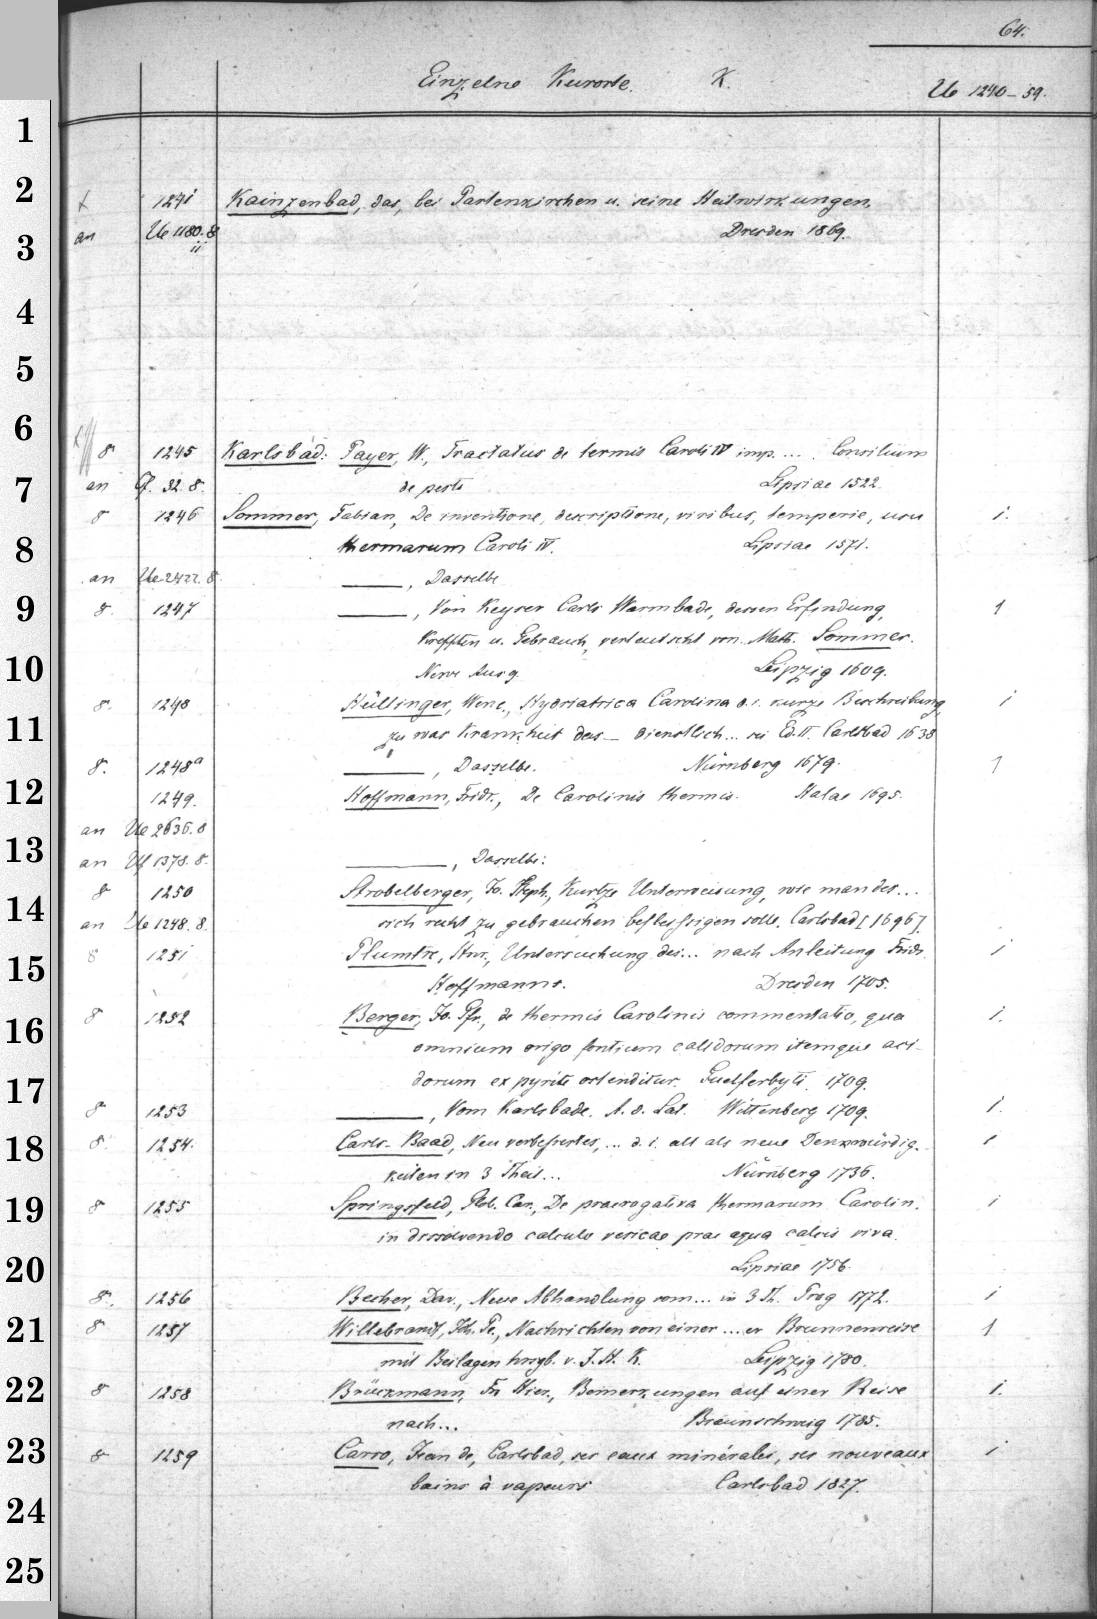 64.
Einzelne Kurorte. K. Ue 1240-59.
1
2
x 1241 Kainzenbad, das, bei Partenkirchen u. seine Heilwirkungen.
3
an Ue 1180.8 Dresden 1869.
ii
4
5
6
8 1245 Karlsbad: Payer, W., Tractatus de termis Caroli IV imp. ... . Consilium
7
an Cf. 32. 8. de peste Lipsiae 1522.
8 1246 Sommer, Fabian, De inventione, descriptione, viribus, temperie, usu 1.
8
thermarum Caroli IV. Lipsiae 1571.
an Ue 2422. 8. ———, Dasselbe
9
8. 1247 ———, Von Keyser Carls Warmbade, dessen Erfindung, 1
Krefften u. Gebrauch, verteutscht von Math. Sommer.
10
Newe Ausg. Leipzig 1609.
8. 1248 Hüllinger, Wenc., Hydriatrica Carolina d.i. kurze Beschreibung, 1
11
zu was Krankheit das — dienstlich... sei Ed. II. Carlsbad 1638
8. 1248a ———, Dasselbe. Nürnberg 1679. 1
12
1249. Hoffmann, Fridr., De Carolinis thermis. Halae 1695.
an Ue 2636. 8
13
an Uf 1378. 8. ———, Dasselbe:
8 1250 Strobelberger, Jo. Steph., Kurtze Unterweisung, wie man des...
14
an Ue 1248. 8. sich recht zu gebrauchen befleissigen solle. Carlsbad [1696].
8 1251 Plumtre, Hnr., Untersuchung des... nach Anleitung Fridr. 1
15
Hoffmanns. Dresden 1705.
8 1252 Berger, Jo. Gfr., de thermis Carolinis commentatio, qua 1.
16
omnium origo fontium calidorum itemque aci-
dorum ex pyrite ostenditur. Guelferbyti 1709.
17
8 1253 ———, Vom Karlsbade. A. d. Lat. Wittenberg 1709. 1.
18
8. 1254. Carls-Baad, Neu verbessertes, ... d. i. alt als neue Denkwürdig- 1
keiten in 3 Theil... Nürnberg 1736.
19
8 1255 Springsfeld, Glob. Car., De praerogativa thermarum Carolin. 1
in dissolvendo calculo vesicae prae aqua calcis viva.
20
Lipsiae 1756.
8. 1256 Becher, Dav., Neue Abhandlung vom... in 3 Th. Prag 1772. 1
21
8 1257 Willebrandt, Joh. Pe., Nachrichten von einer ...er Brunnenreise 1
mit Beilagen hrsgb. v. J. H. K. Leipzig 1780.
22
8 1258 Brückmann, Fr. Hier., Bemerkungen auf einer Reise 1.
nach... Braunschweig 1785.
23
8 1259 Carro, Jean de, Carlsbad, ses eaux minérales, ses nouveaux 1
bains à vapeurs Carlsbad 1827.
24
25